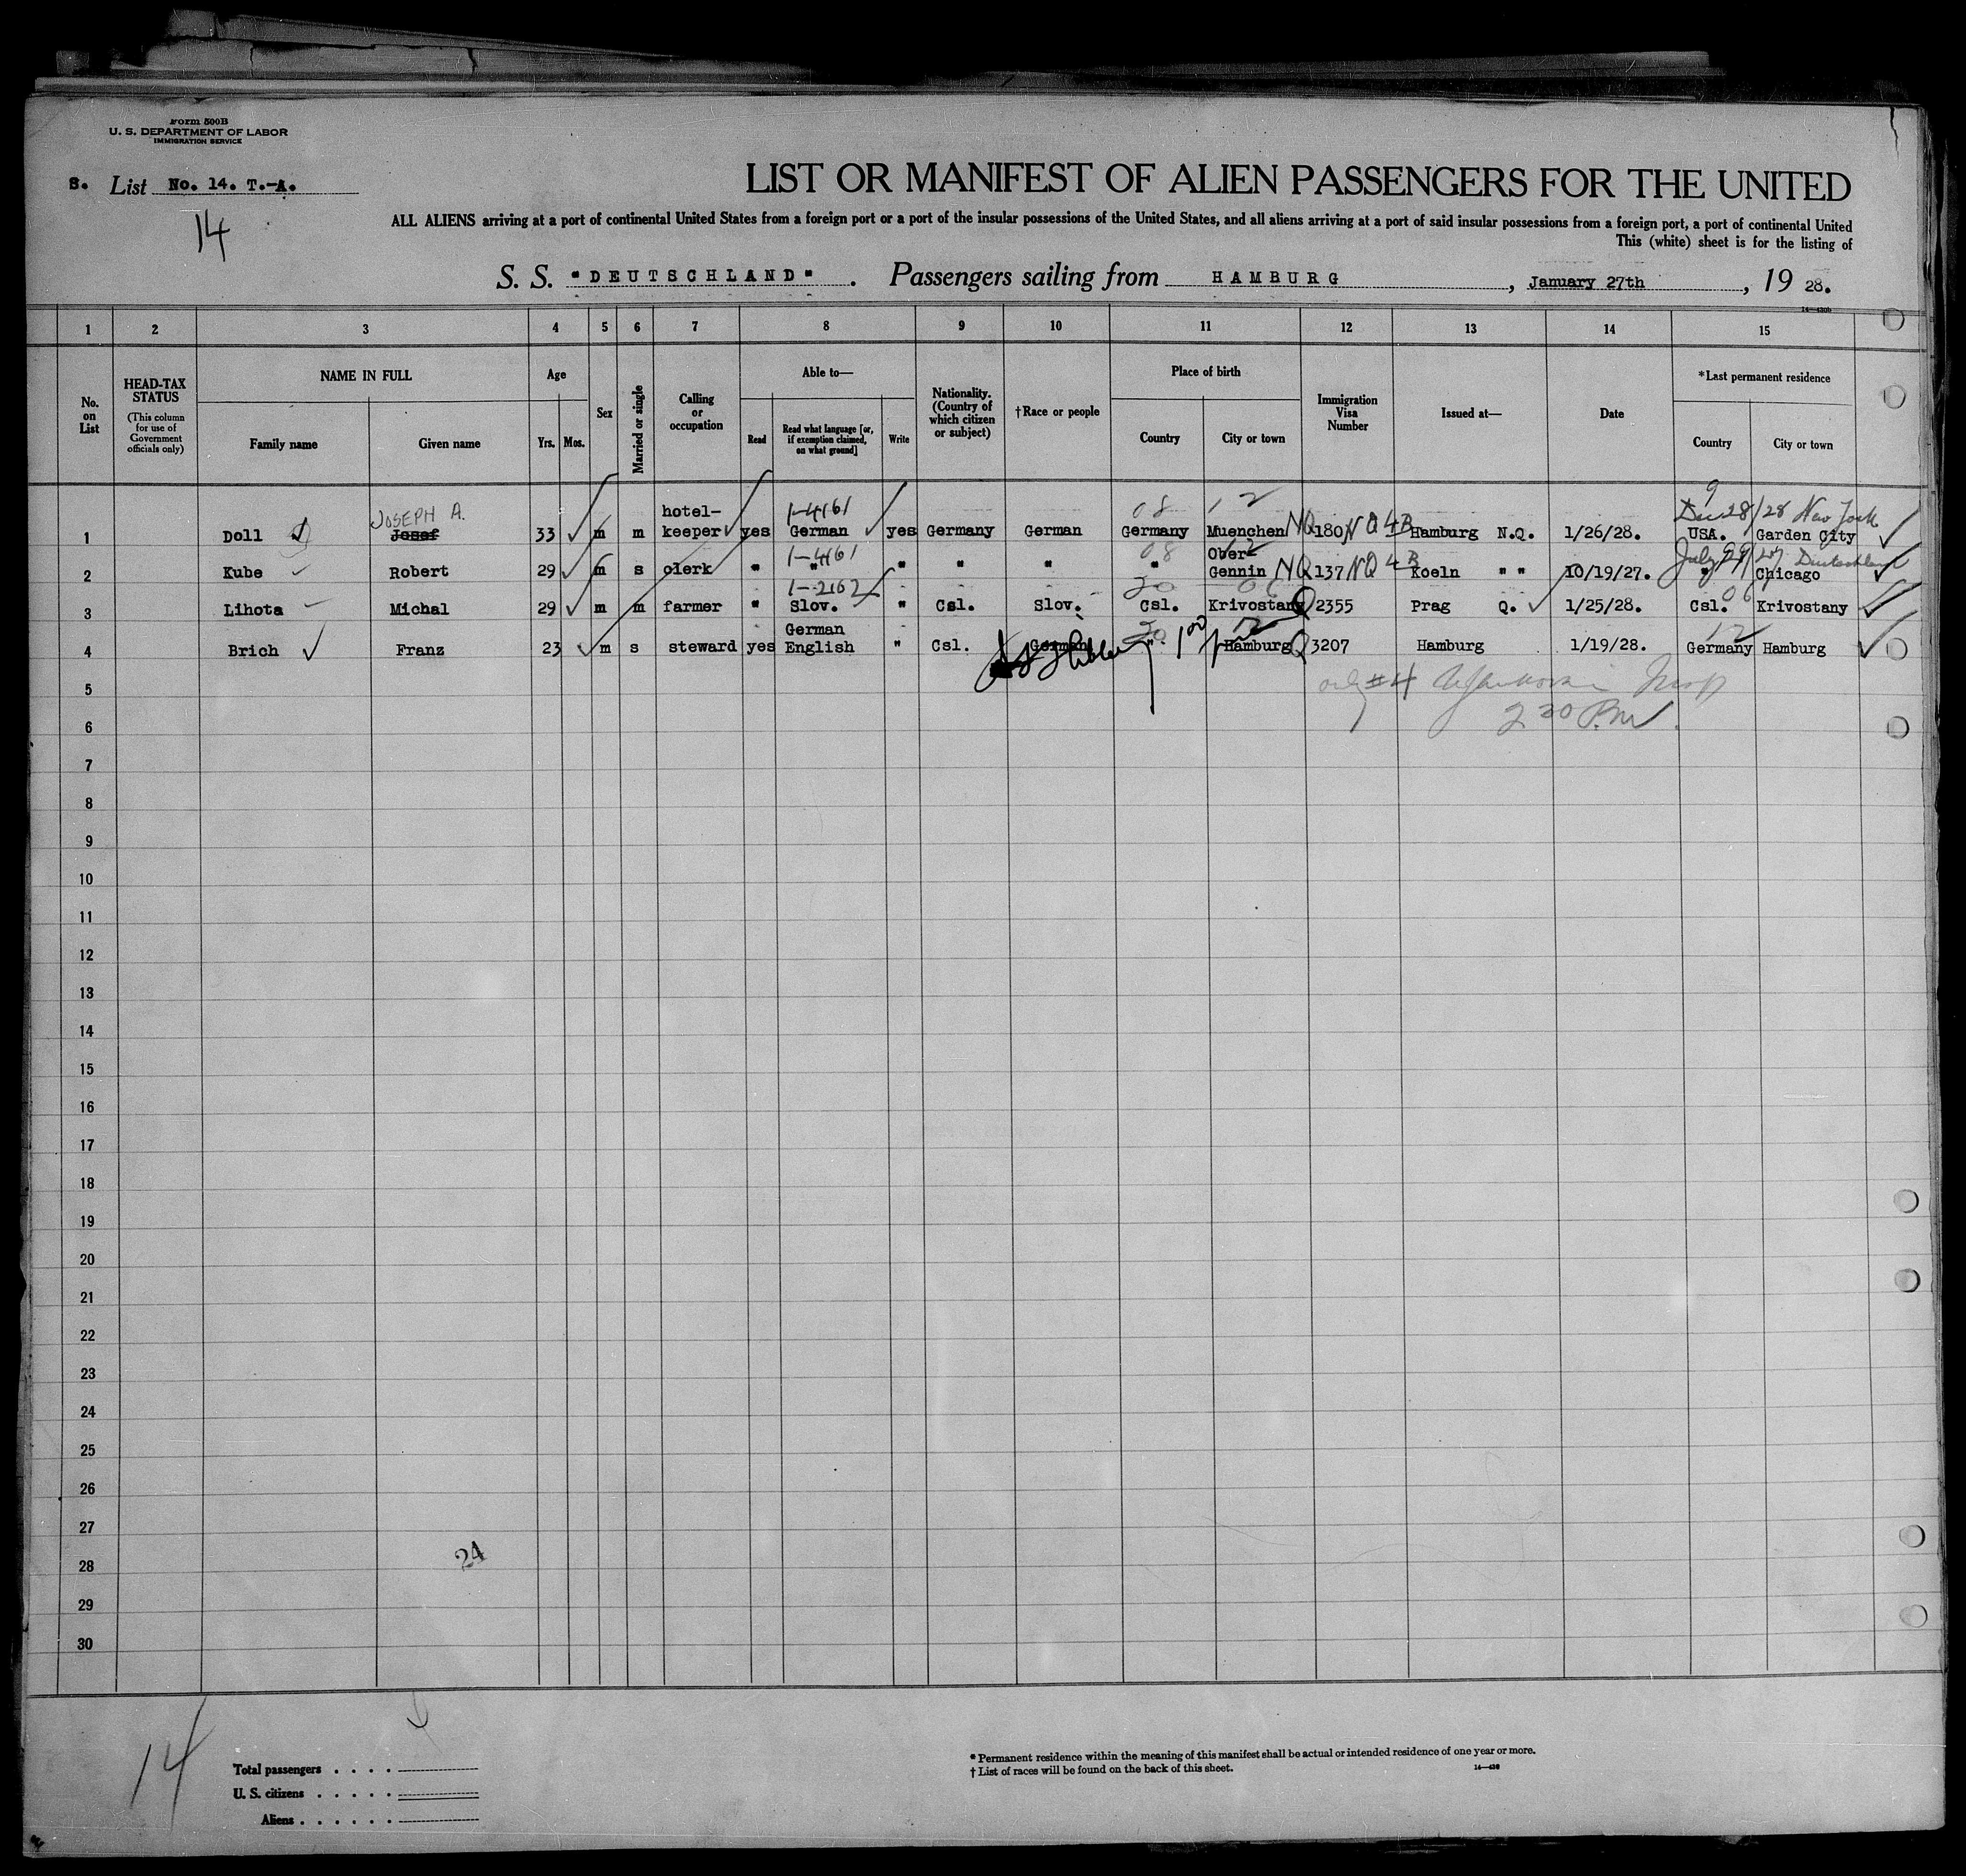 Form 500B
U. S. DEPARTMENT OF LABOR
IMMIGRATION SERVICE
S. List No. 14. T.-A.
14
LIST OR MANIFEST OF ALIEN PASSENGERS FOR THE UNITED
ALL ALIENS arriving at a port of continental United States from a foreign port or a port of the insular possessions of the United States, and all aliens arriving at a port of said insular possessions from a foreign port, a port of continental United
This (white) sheet is for the listing of
S. S. "DEUTSCHLAND". Passengers sailing from HAMBURG, January 27th, 19 28.
14—430b
1 2 3 4 5 6 7 8 9 10 11 12 13 14 15
No. on List
HEAD-TAX STATUS
(This column for use of Government officials only)
NAME IN FULL
Family name Given name
Age
Yrs. Mos.
Sex
Married or single
Calling or occupation
Able to—
Read
Read what language [or, if exemption claimed, on what ground]
Write
Nationality. (Country of which citizen or subject)
†Race or people
Place of birth
Country City or town
Immigration Visa Number
Issued at—
Date
*Last permanent residence
Country City or town
JOSEPH A. 1-4161 08 12 Dec 28/28 New York
1 Doll Josef 33 m m hotel-keeper yes German yes Germany German Germany Muenchen NQ 180 NQ 4B Hamburg N.Q. 1/26/28. USA. Garden City
1-4161 08 July 29/27 Deutschland
2 Kube Robert 29 m s clerk " " " " " " Ober Gennin NQ 137 NQ 4B Koeln " " 10/19/27. " Chicago
1-2162 20 06 06
3 Lihota Michal 29 m m farmer " Slov. " Csl. Slov. Csl. Krivostany Q 2355 Prag Q. 1/25/28. Csl. Krivostany
20 12 12
4 Brich Franz 23 m s steward yes German English " Csl. German " 1 00 Hamburg Q 3207 Hamburg 1/19/28. Germany Hamburg
only #4
2 30 P.M.
5
6
7
8
9
10
11
12
13
14
15
16
17
18
19
20
21
22
23
24
25
26
27
28
29
30
24
14
Total passengers
U. S. citizens
Aliens
* Permanent residence within the meaning of this manifest shall be actual or intended residence of one year or more.
† List of races will be found on the back of this sheet.
14—430